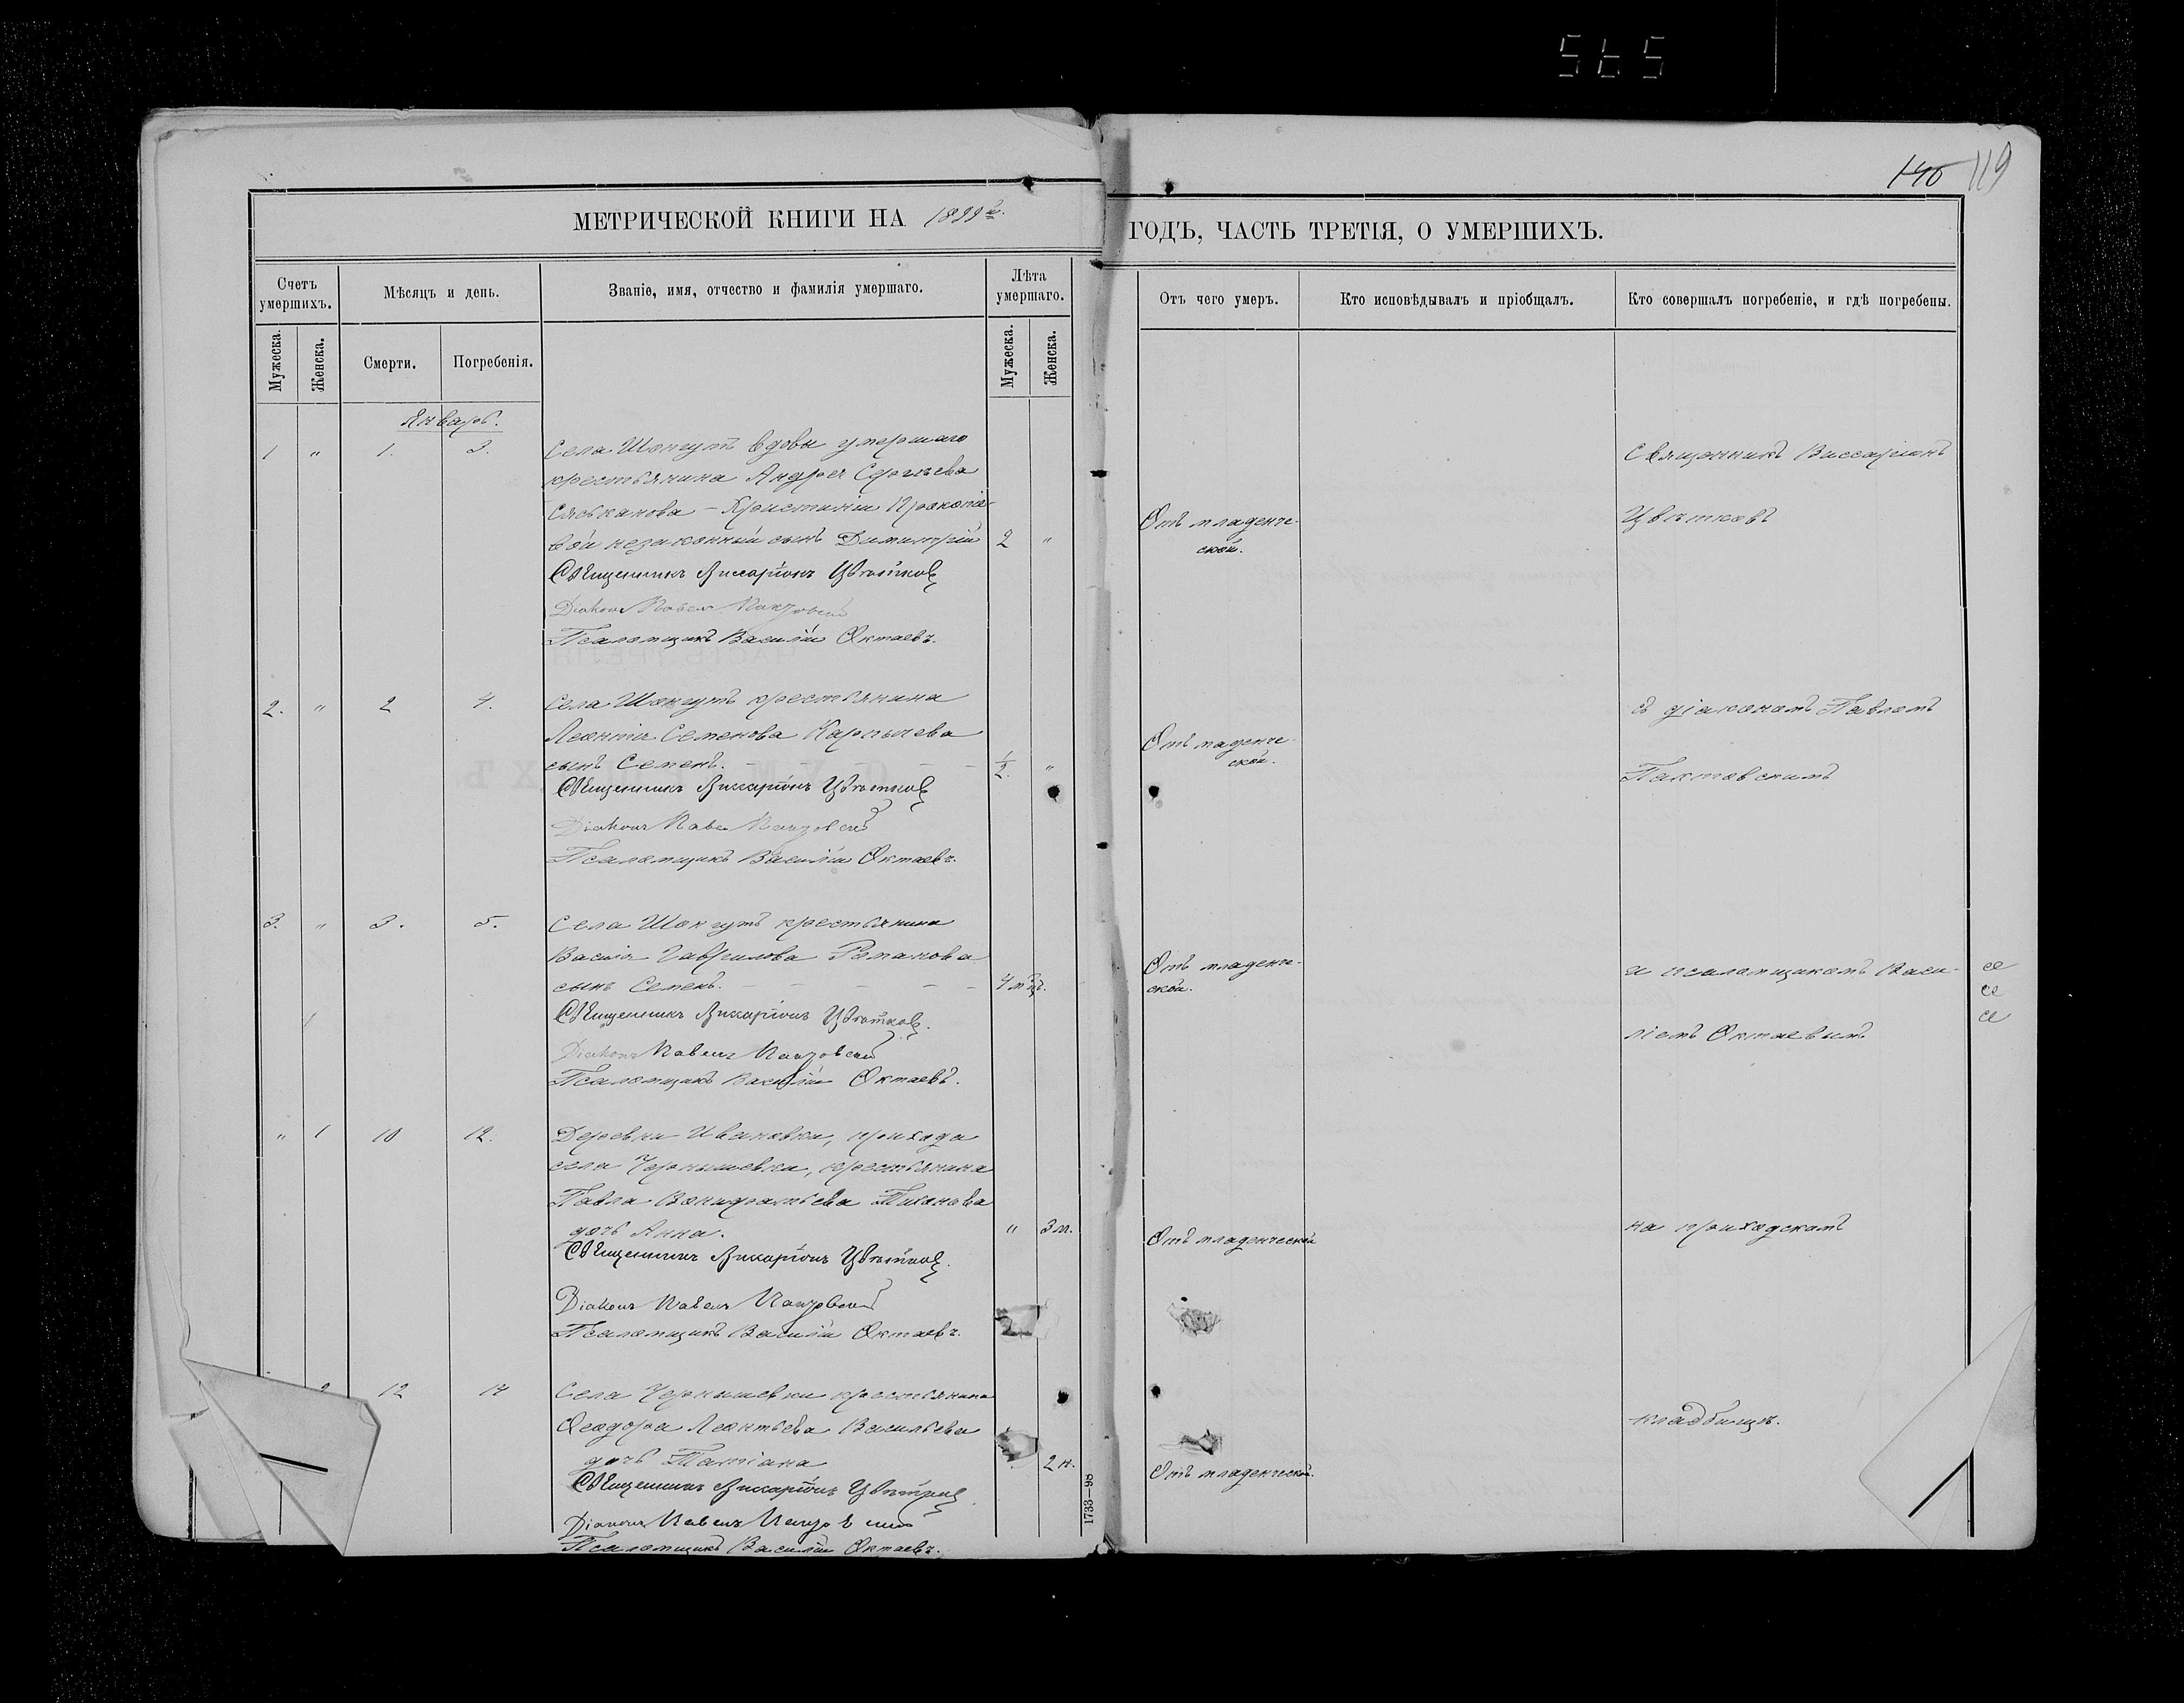 565
140 119
МЕТРИЧЕСКОЙ КНИГИ НА 1899й.
ГОДЪ, ЧАСТЬ ТРЕТІЯ, О УМЕРШИХЪ.
Счетъ умершихъ.
Мѣсяцъ и день.
Званіе, имя, отчество и фамилія умершаго.
Лѣта умершаго.
Отъ чего умеръ.
Кто исповѣдывалъ и пріобщалъ.
Кто совершалъ погребеніе, и гдѣ погребены.
Мужеска.
Женска.
Смерти.
Погребенія.
Мужеска.
Женска.
Январь.
1 " 1. 3.
Села Шонгутъ вдовы умершаго
крестьянина Андрея Сергѣева
– Христиніи Прокопіе-
вой незаконный сынъ Димитрій 2 "
Отъ младенче-
ской.
Священникъ Виссаріонъ
Цвѣтковъ
Священникъ Виссаріонъ Цвѣтковъ
Діаконъ Павелъ
Псаломщикъ Василій Октаевъ.
2. " 2 4.
Села Шонгутъ крестьянина
Леонтія Семенова Карпычева
сынъ Семенъ. – – – 1/2. "
Отъ маденче-
ской.
съ діакономъ Павломъ
Священникъ Виссаріонъ Цвѣтковъ
Діаконъ Павелъ
Псаломщикъ Василій Октаевъ.
3. " 3. 5.
Села Шонгутъ крестьянина
Василія Гаврилова Романова
сынъ Семенъ. – – – – – 4 мѣц.
Отъ младенче-
ской.
и псаломщикомъ Васи-
ліемъ Октаевымъ
Священникъ Виссаріонъ Цвѣтковъ.
Діаконъ Павелъ
Псаломщикъ Василій Октаевъ.
" 1 10 12.
Деревни Ивановки, прихода
села Чернышевки, крестьянина
Павла Тихонова
дочь Анна. " 3 м.
Отъ младенческой
на приходскомъ
Священникъ Виссаріонъ Цвѣтковъ.
Діаконъ Павелъ
Псаломщикъ Василій Октаевъ.
2 12 14
Села Чернышевки крестьянина
Ѳеодора Леонтьева Васильева
дочь Татіана 2 н.
Отъ младенческой.
кладбищѣ.
Священникъ Виссаріонъ Цвѣтковъ
Діаконъ Павелъ
Псаломщикъ Василій Октаевъ.
1733—98